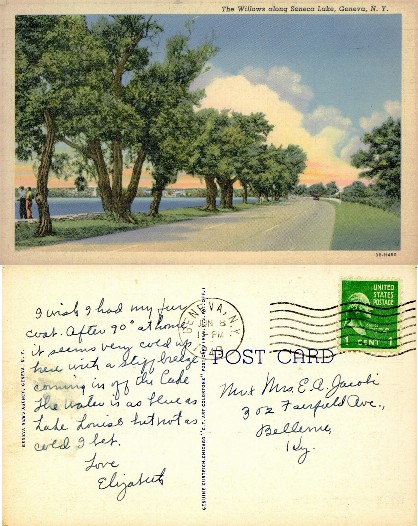 The Willows along Seneca Lake, Geneva, N. Y.
5B-H460
I wish I had my fur
coat. After 90° at home
it seems very cold up
here with a stiff breeze
coming in off the Lake
The water is as blue as
Lake Louise but not as
cold I bet.
Love
Elizabeth
GENEVA NEWS AGENCY, GENEVA, N. Y.
GENUINE CURTEICH-CHICAGO "C. T. ART-COLORTONE" POST CARD
GENEVA, N.Y.
JUN 8
PM
UNITED
STATES
POSTAGE
1 CENT 1
POST CARD
Mr & Mrs. E. A. Jacobi
302 Fairfield Ave.,
Bellevue,
Ky.